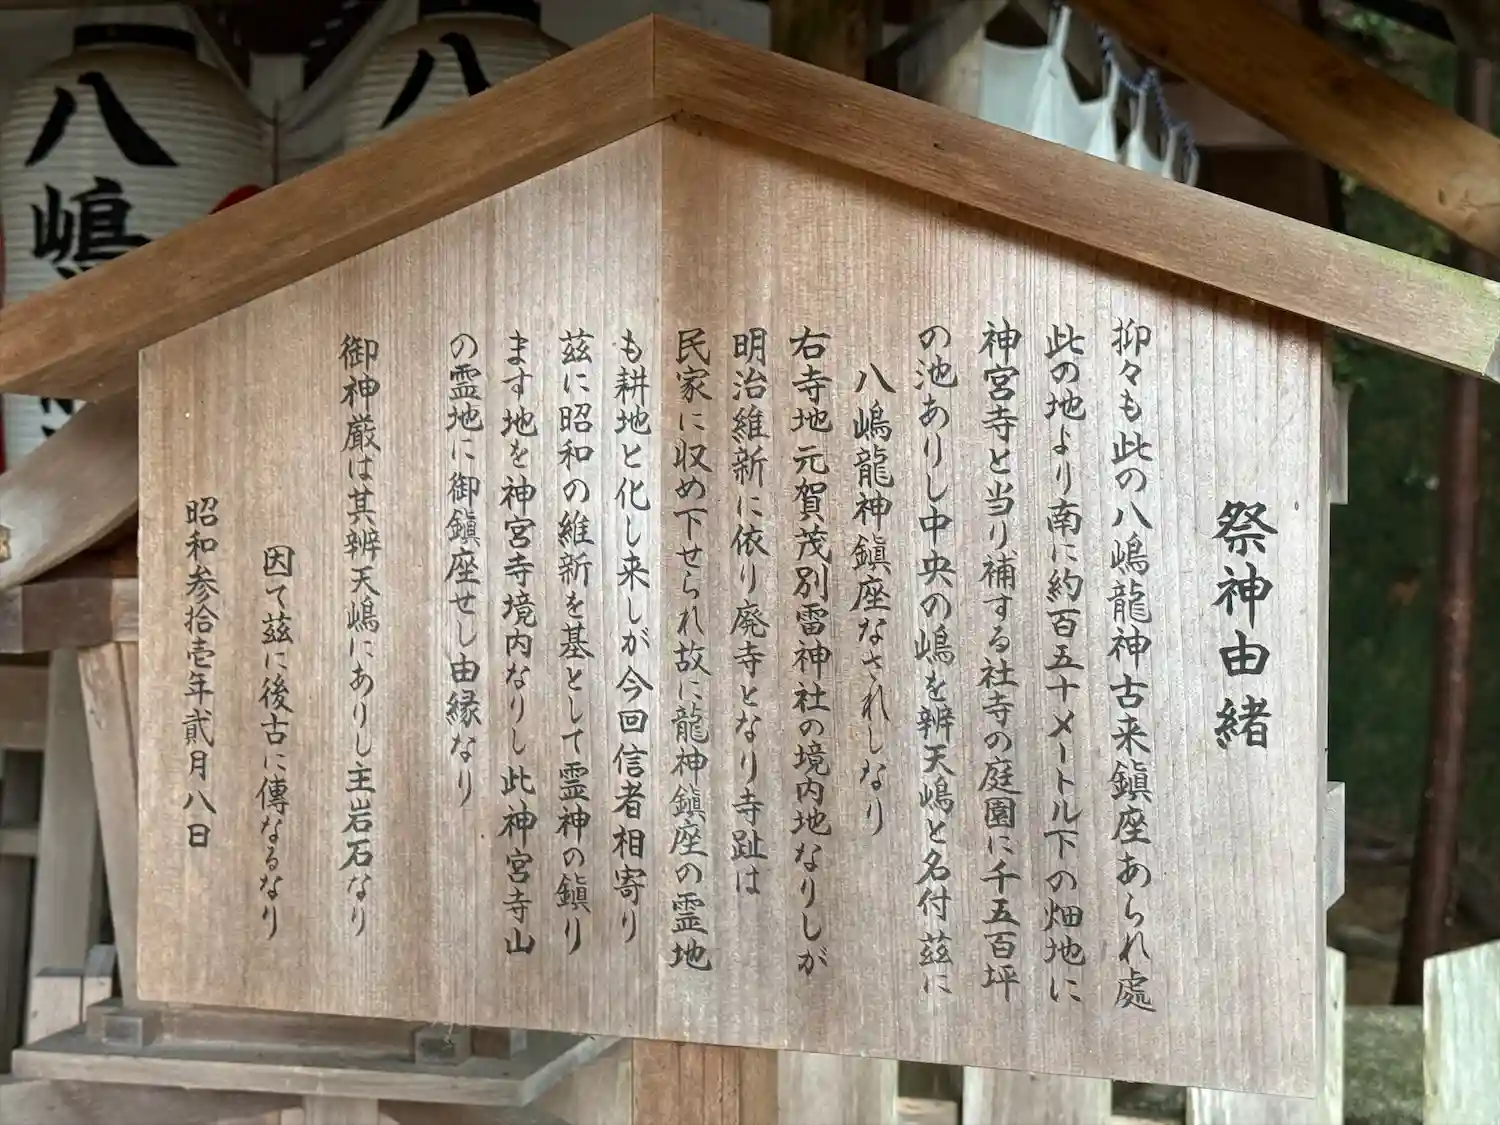 祭神由緒
抑々も此の八嶋龍神古来鎮座あられ處
此の地より南に約百五十メートル下の畑地に
神宮寺と当り補する社寺の庭園に千五百坪
の池ありし中央の嶋を辨天嶋と名付茲に
八嶋龍神鎮座なされしなり
右寺地元賀茂別雷神社の境内地なりしが
明治維新に依り廃寺となり寺趾は
民家に収め下せられ故に龍神鎮座の霊地
も耕地と化し来しが今回信者相寄り
茲に昭和の維新を基として霊神の鎮り
ます地を神宮寺境内なりし此神宮寺山
の霊地に御鎮座せし由縁なり
御神厳は其辨天嶋にありし主岩石なり
因て茲に後古に傳なるなり
昭和参拾壱年貳月八日
八嶋
八